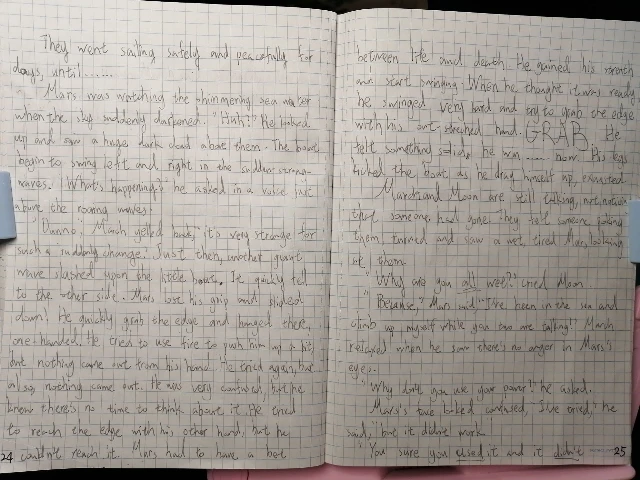 They went sailing safely and peacefully for
days, until......
Mars was watching the shimmering sea water
when the sky suddenly darkened. "Huh?" He looked
up and saw a huge dark cloud above them. The boat
begin to swing left and right in the sudden
waves. "What's happening?" he asked in a voice just
above the roaring waves.
"Dunno," March yelled back, "it's very strange for
such a sudden change. Just then, another giant
wave slashed upon the little boat. It quickly fell
to the other side. Mars lost his grip and slided
down! He quickly grab the edge and hanged there,
one-handed. He tried to use fire to push him up a bit,
but nothing came out from his hand. He tried again, but
also, nothing came out. He was very confused, but he
knew there's no time to think about it. He tried
to reach the edge with his other hand, but he
24 couldn't reach it. Mars had to have a bet
between life and death. He gained his
and start swinging. When he thought it was ready
he swinged very hard and try to grab the edge
with his out-streched hand. GRAB He
felt something solid, he won .... now. His legs
kicked the boat as he drag himself up, exhausted.
March and Moon are still talking, not noticing
that someone had gone. They felt someone
them, turned and saw a wet, tired Mars, looking
at them.
"Why are you all wet?" cried Moon.
"Because," Mars said "I've been in the sea and
climb up myself while you two are talking!" March
relaxed when he saw there's no anger in Mars's
eyes.
"Why don't you use your power?" he asked.
Mars's face looked confused, "I've tried," he
said, "but it didn't work."
"You sure you used it and it didn't 25